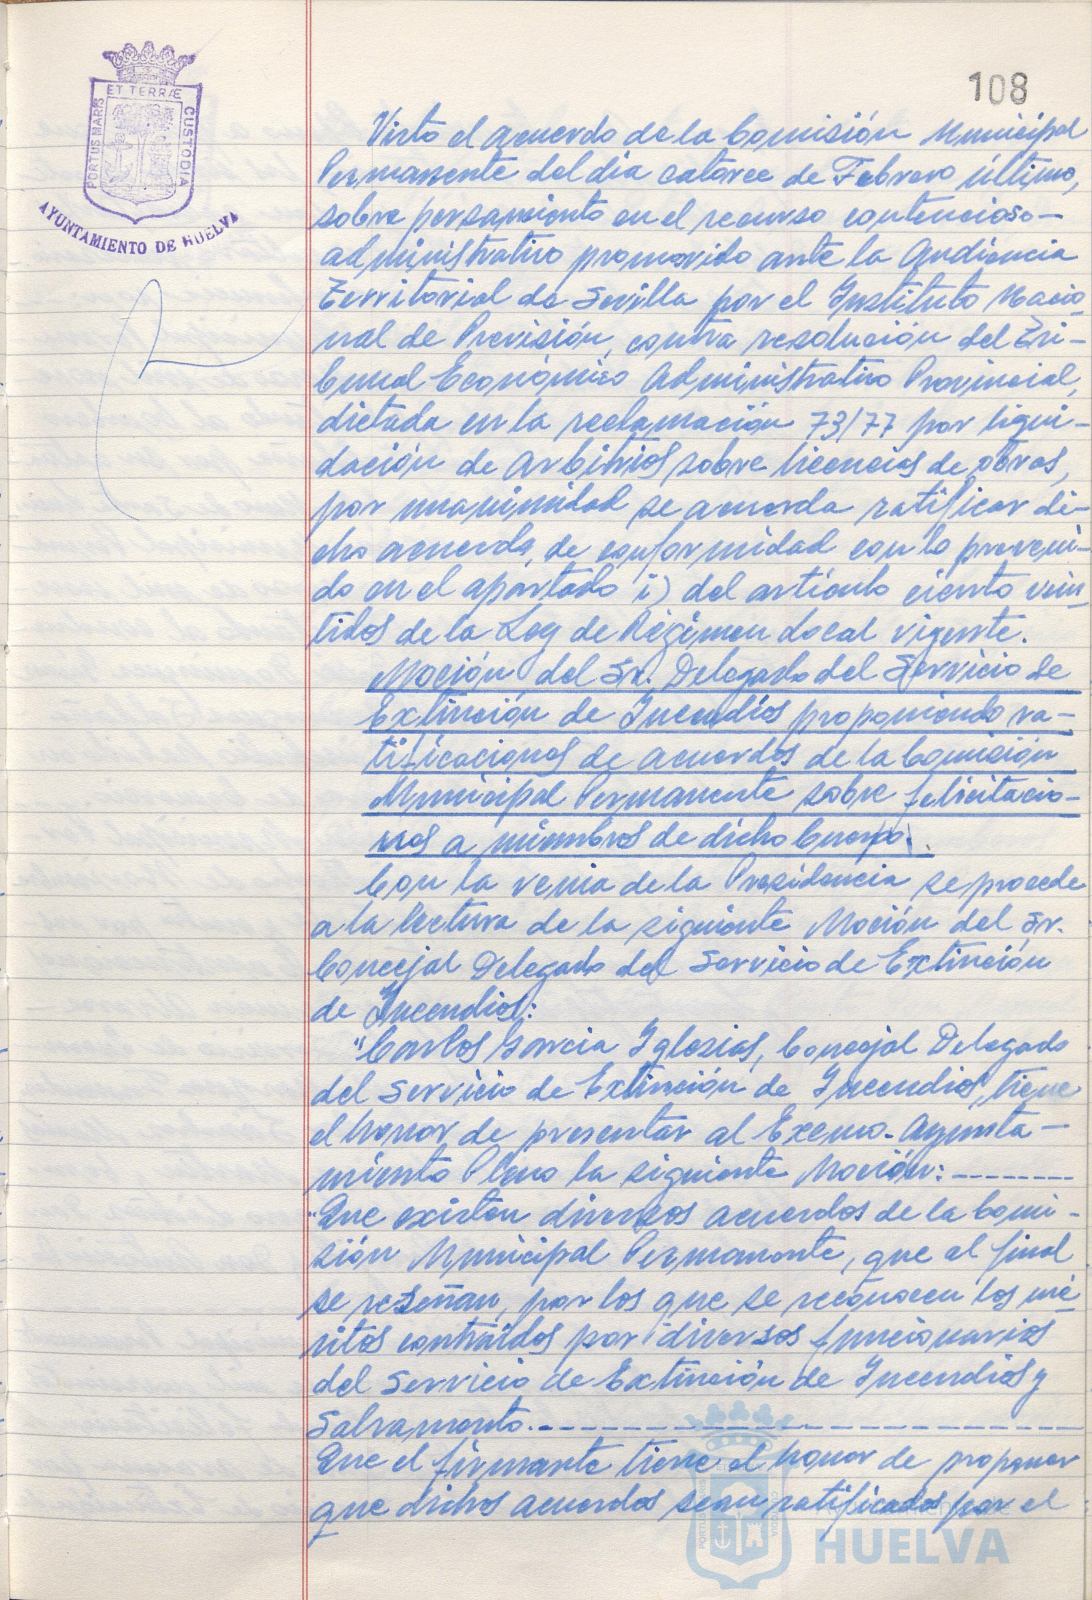 108
PORTUS MARIS ET TERRÆ CUSTODIA
AYUNTAMIENTO DE HUELVA
Visto el acuerdo de la Comisión Municipal
Permanente del día catorce de Febrero último,
sobre personamiento en el recurso contencioso-
administrativo promovido ante la Audiencia
Territorial de Sevilla por el Instituto Nacio-
nal de Previsión, contra resolución del Tri-
bunal Económico Administrativo Provincial,
dictada en la reclamación 73/77 por liqui-
dación de Arbitrios sobre licencias de obras,
por unanimidad se acuerda ratificar di-
cho acuerdo, de conformidad con lo preveni-
do en el apartado i) del artículo ciento vein-
tidos de la Ley de Régimen Local vigente.
Moción del Sr. Delegado del Servicio de
Extinción de Incendios proponiendo ra-
tificaciones de acuerdos de la Comisión
Municipal Permanente sobre felicitacio-
nes a miembros de dicho Cuerpo.
Con la venia de la Presidencia se procede
a la lectura de la siguiente Moción del Sr.
Concejal Delegado del Servicio de Extinción
de Incendios:
"Carlos García Iglesias, Concejal Delegado
del Servicio de Extinción de Incendios, tiene
el honor de presentar al Excmo. Ayunta-
miento Pleno la siguiente Moción:--------
"Que existen diversos acuerdos de la Comi-
sión Municipal Permanente, que al final
se reseñan, por los que se reconocen los mé-
ritos contraídos por diversos funcionarios
del Servicio de Extinción de Incendios y
Salvamento.--------------------
Que el firmante tiene el honor de proponer
que dichos acuerdos sean ratificados por el
HUELVA